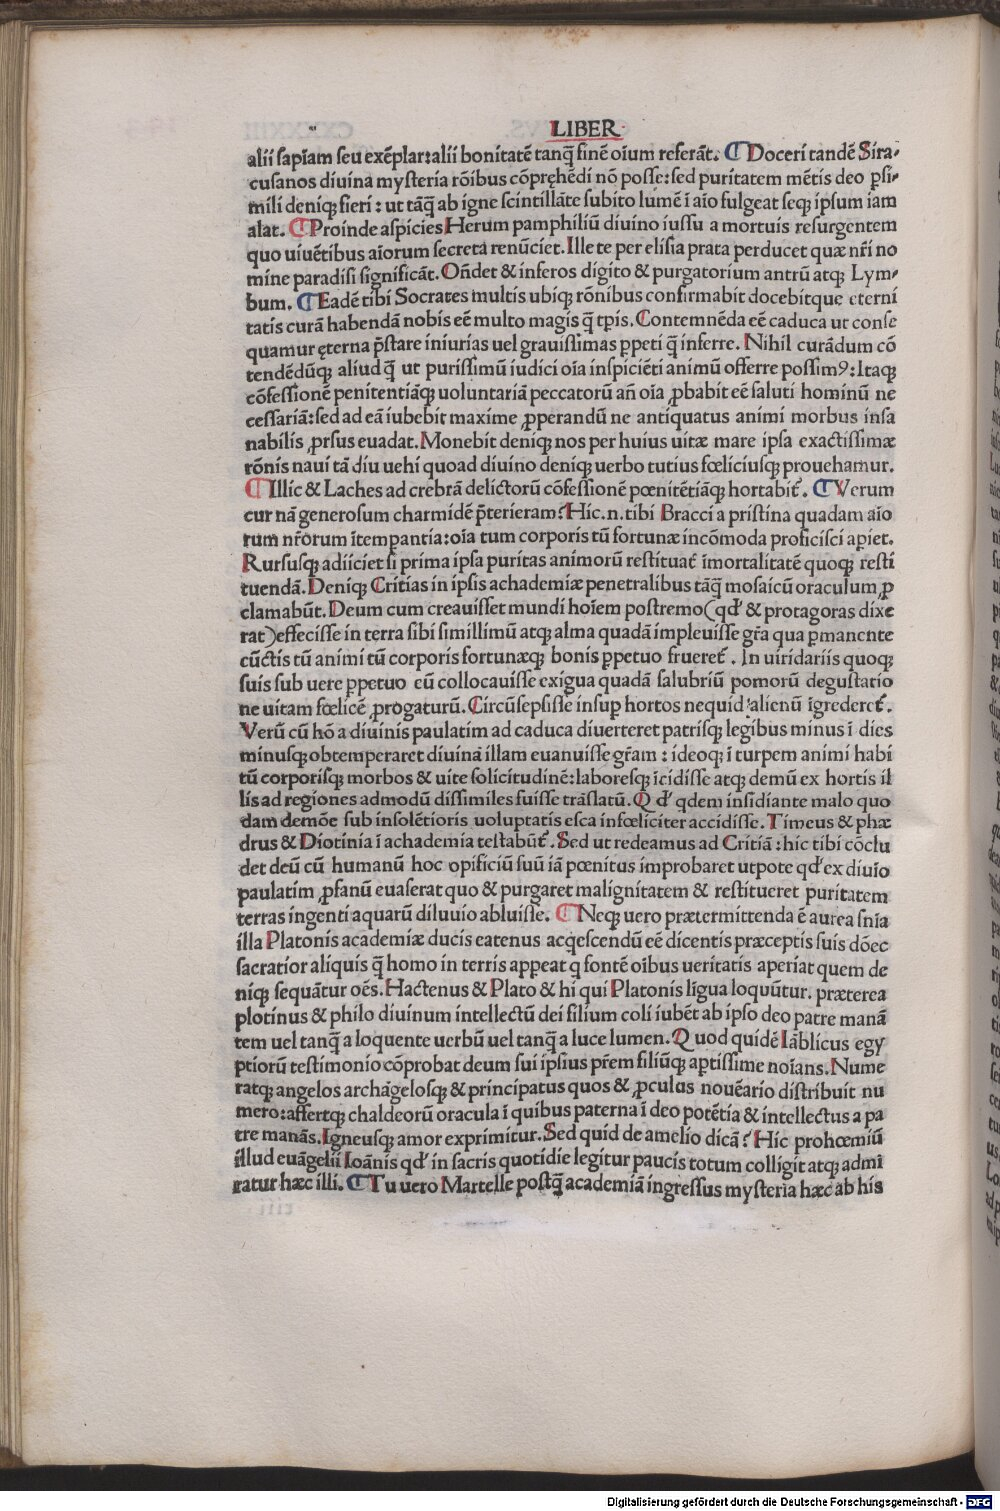 LIBER
alii sapiam seu exēplar:alii bonitatē tanq̄ finē oium referāt. ¶ Doceri tandē Sira-
cusanos diuina mysteria rōibus cōpręhēdi nō posse:sed puritatem mētis deo ꝑsi-
mili deniqꝫ fieri : ut tāqꝫ ab igne scintillāte subito lumē ī aīo fulgeat seqꝫ ipsum iam
alat. ¶ Proinde aspicies Herum pamphiliū diuino iussu a mortuis resurgentem
quo uiuētibus aīorum secreta renūciet. Ille te per elisia prata perducet quæ nr̄i no
mine paradisi significāt. Oñdet & inferos digito & purgatorium antrū atqꝫ Lym-
bum. ¶ Eadē tibi Socrates multis ubiqꝫ rōnibus confirmabit docebitque eterni
tatis curā habendā nobis eē multo magis q̄ tp̄is. Contemnēda eē caduca ut conse
quamur ęterna p̄stare iniurias uel grauissimas ꝑpeti q̄ inferre. Nihil curādum cō
tendēdūqꝫ aliud q̄ ut purissimū iudici oīa inspiciēti animū offerre possimꝰ: Itaqꝫ
cōfessionē penitentiāqꝫ uoluntariā peccatorū añ oīa ꝓbabit eē saluti hominū ne
cessariā:sed ad eā iubebit maxime ꝓperandū ne antiquatus animi morbus insa
nabilis ꝓrsus euadat. Monebit deniqꝫ nos per huius uitæ mare ipsa exactissimæ
rōnis naui tā diu uehi quoad diuino deniqꝫ uerbo tutius fœliciusqꝫ prouehamur.
¶ Illic & Laches ad crebrā delictorū cōfessionē pœnitētiāqꝫ hortabit᷑. ¶ Verum
cur nā generosum charmidē p̄terieram? Hic.n.tibi Bracci a pristina quadam aīo
rum nr̄orum ītemperantia:oīa tum corporis tū fortunæ incōmoda proficisci aꝑiet.
Rursusqꝫ adiiciet si prima ipsa puritas animorū restituat᷑ īmortalitatē quoqꝫ resti
tuendā. Deniqꝫ Critias in ipsis achademiæ penetralibus tāqꝫ mosaicū oraculum ꝓ
clamabūt. Deum cum creauisset mundi hoīem postremo (qď & protagoras dixe
rat) effecisse in terra sibi simillimū atqꝫ alma quadā impleuisse gr̄a qua ꝑmanente
cūctis tū animi tū corporis fortunæqꝫ bonis ꝑpetuo frueret᷑. In uiridariis quoqꝫ
suis sub uere ꝑpetuo eū collocauisse exigua quadā salubriū pomorū degustatio
ne uitam fœlicē ꝓrogaturū. Circūsepsisse insuꝑ hortos nequid alienū īgrederet᷑.
Verū cū hō a diuinis paulatim ad caduca diuerteret patrisqꝫ legibus minus ī dies
minusqꝫ obtemperaret diuinā illam euanuisse gr̄am : ideoqꝫ ī turpem animi habi
tū corporisqꝫ morbos & uite solicitudinē:laboresqꝫ īcidisse atqꝫ demū ex hortis il
lis ad regiones admodū dissimiles fuisse trāslatū. Qď qdem insidiante malo quo
dam demōe sub insolētioris uoluptatis esca infœliciter accidisse. Timeus & phæ
drus & Diotinia ī achademia testabūt᷑. Sed ut redeamus ad Critiā : hic tibi cōclu
det deū cū humanū hoc opificiū suū iā pœnitus improbaret utpote qď ex diuio
paulatim ꝓfanū euaserat quo & purgaret malignitatem & restitueret puritatem
terras ingenti aquarū diluuio abluisse. ¶ Neqꝫ uero prætermittenda ē aurea snīa
illa Platonis academiæ ducis eatenus acqescendū eē dicentis præceptis suis dōec
sacratior aliquis q̄ homo in terris appeat q fontē oibus ueritatis aperiat quem de
niqꝫ sequātur oēs. Hactenus & Plato & hi qui Platonis līgua loquūtur. præterea
plotinus & philo diuinum intellectū dei filium coli iubēt ab ipso deo patre manā
tem uel tanq̄ a loquente uerbū uel tanq̄ a luce lumen. Quod quidē Iāblicus egy
ptiorū testimonio cōprobat deum sui ipsius pr̄em filiūqꝫ aptissime noīans. Nume
ratqꝫ angelos archāgelosqꝫ & principatus quos & ꝓculus nouēario distribuit nu
mero:affertqꝫ chaldeorū oracula ī quibus paterna ī deo potētia & intellectus a pa
tre manās. Igneusqꝫ amor exprimitur. Sed quid de amelio dicā? Hic prohœmiū
illud euāgelii Ioānis qď in sacris quotidie legitur paucis totum colligit atqꝫ admi
ratur hæc illi. ¶ Tu uero Martelle postq̄ academiā ingressus mysteria hæc ab his
Digitalisierung gefördert durch die Deutsche Forschungsgemeinschaft - DFG